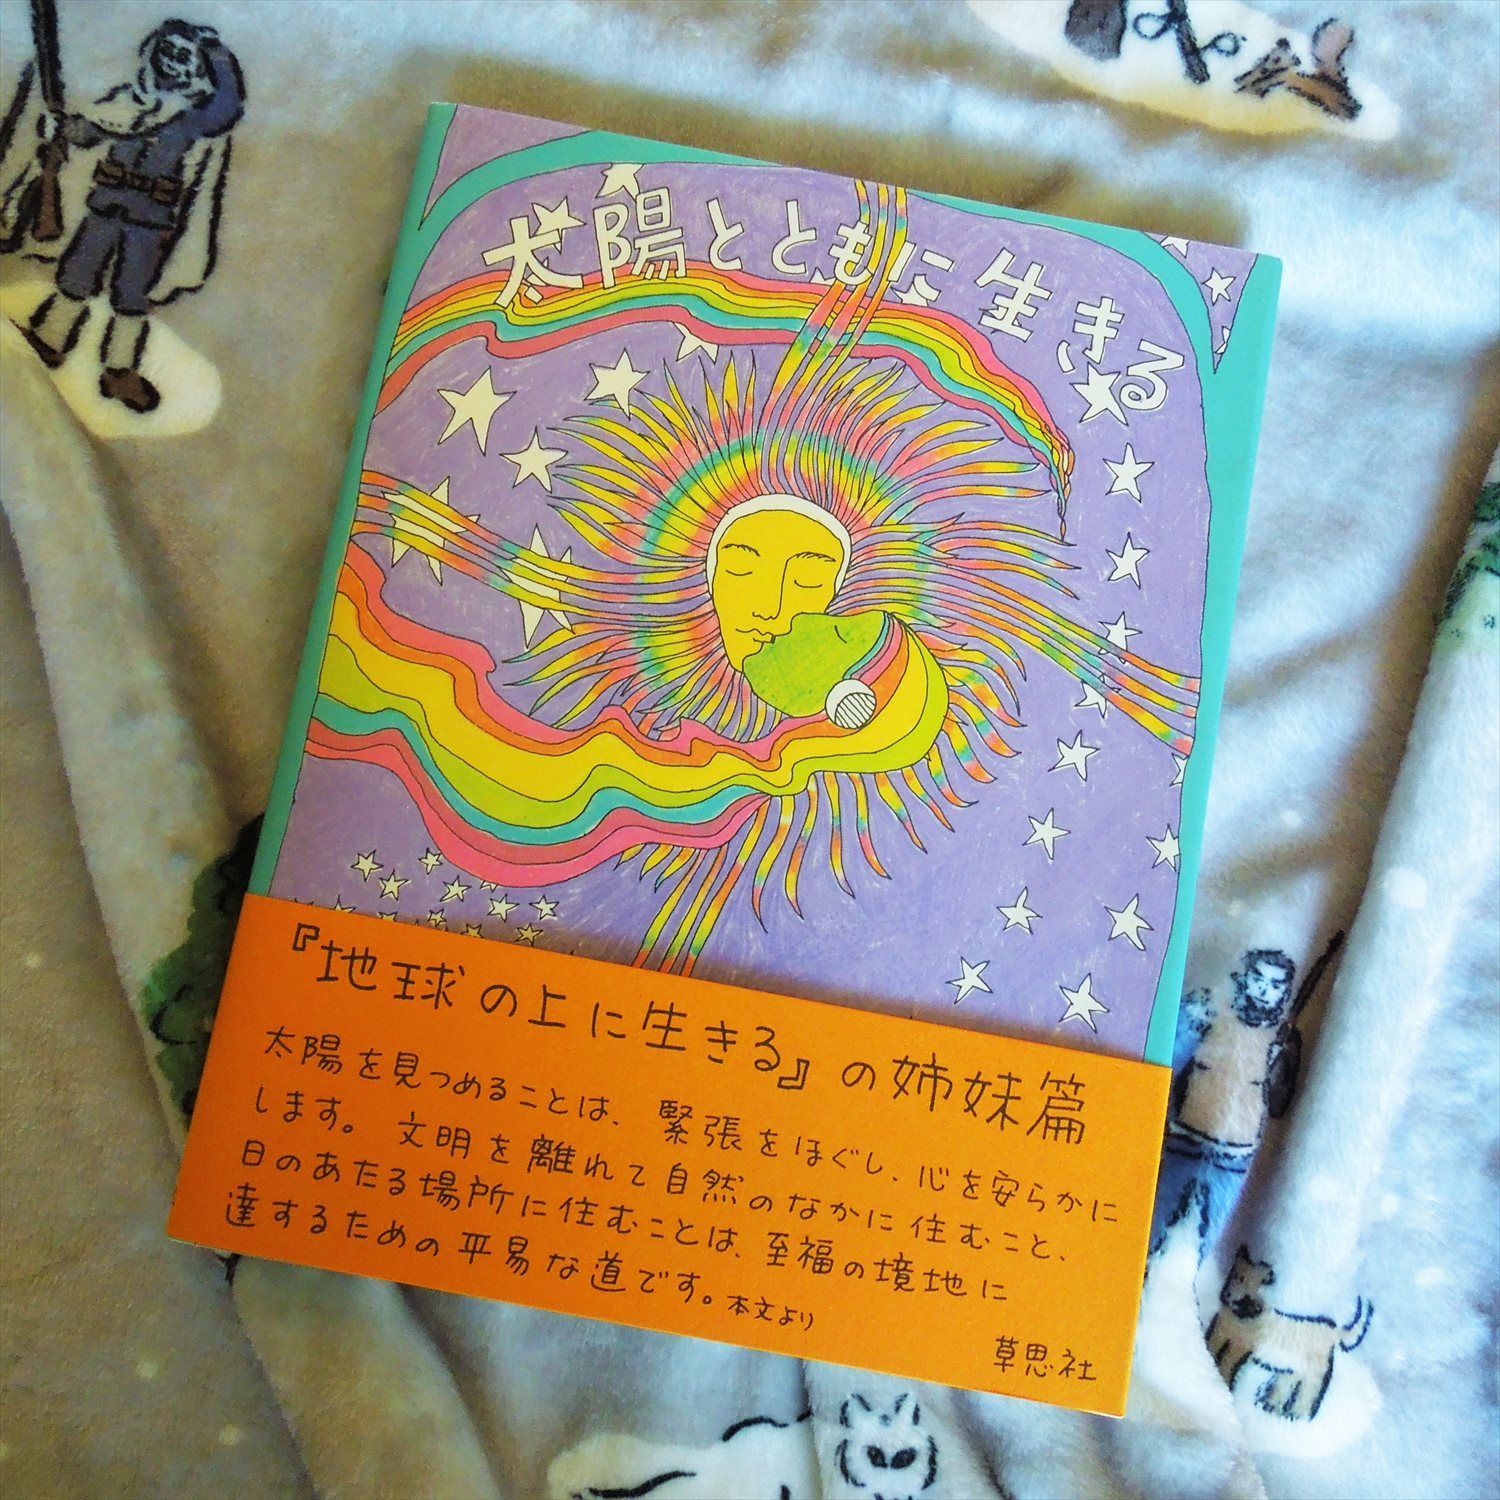 太陽とともに生きる
『地球の上に生きる』の姉妹篇
太陽を見つめることは、緊張をほぐし、心を安らかに
します。文明を離れて自然のなかに住むこと、
日のあたる場所に住むことは、至福の境地に
達するための平易な道です。本文より
草思社